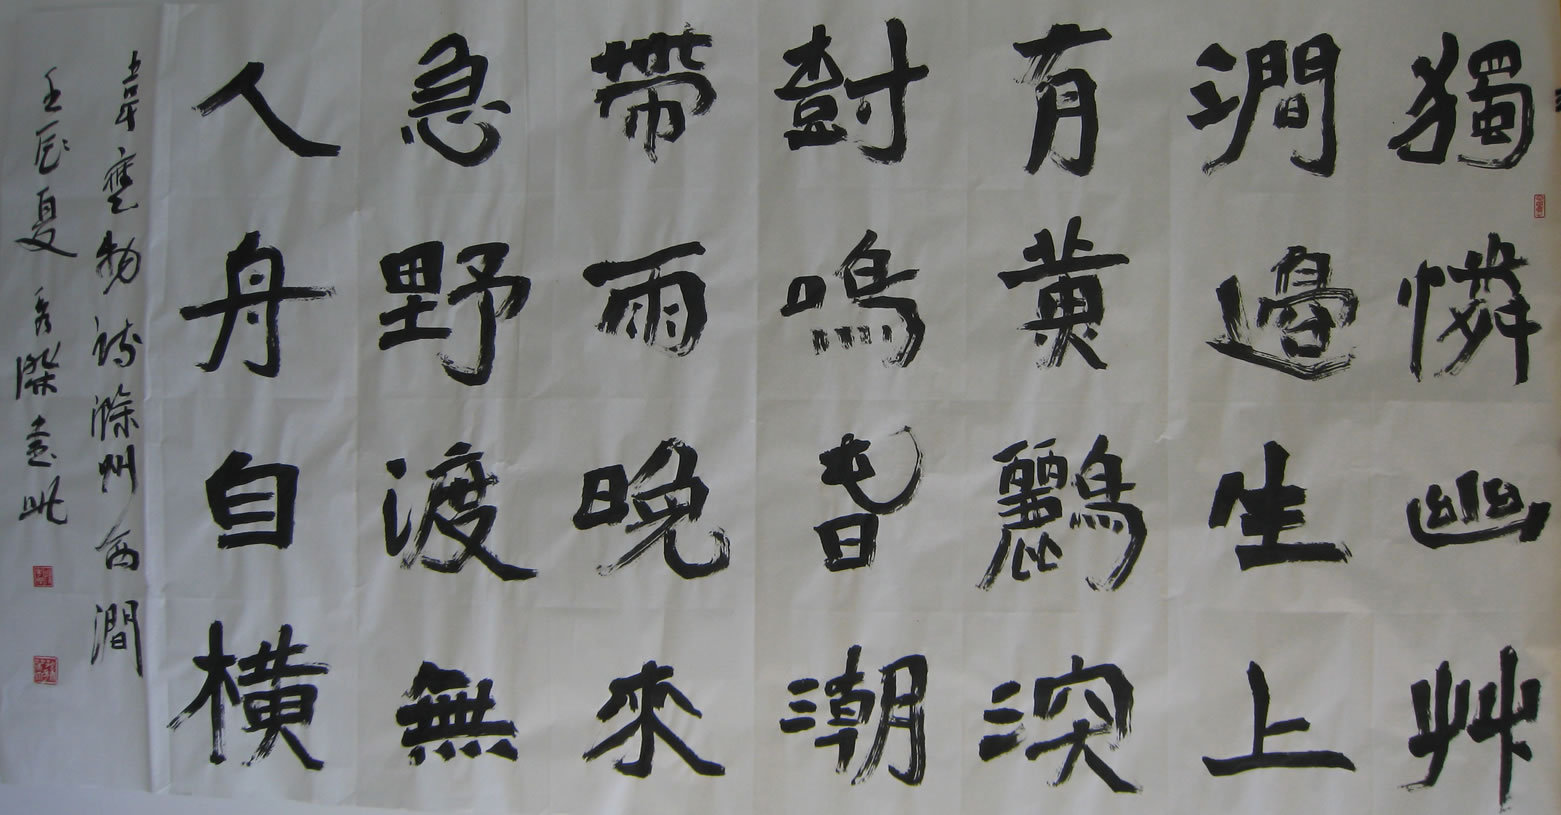 獨憐幽艸
澗邊生上
有黃鸝深
尌鳴旾潮
帶雨晚來
急野渡無
人舟自橫
韋應物詩滁州西澗
壬辰夏